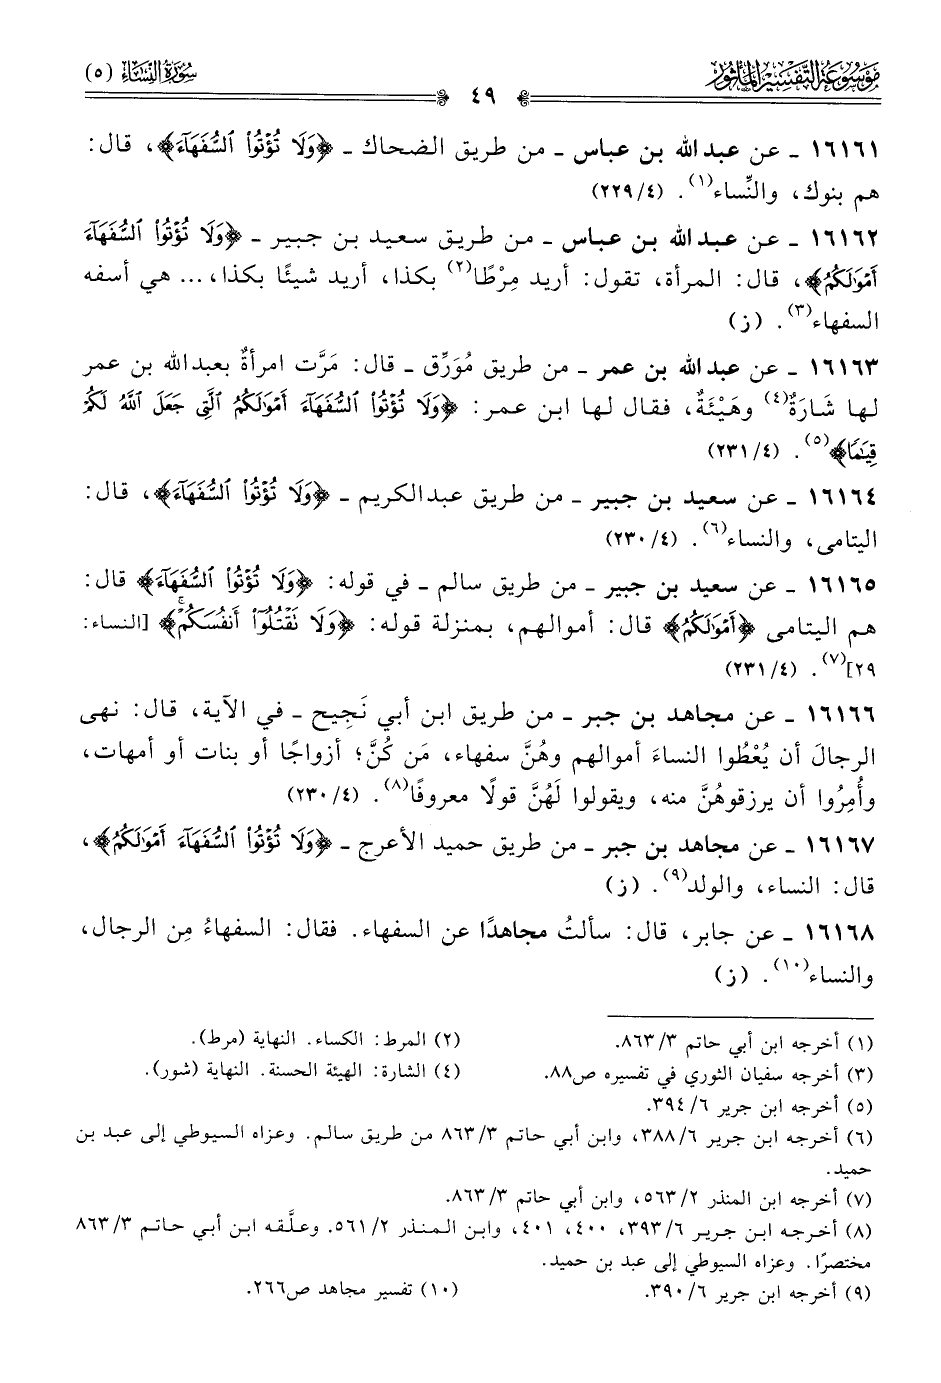 مَوْسُوعَة التَّفْسِير المَأْثُور
سُورَةُ النِّسَاءِ (٥)
٤٩
١٦١٦١ ـ عن عبد الله بن عباس ـ من طريق الضحاك ـ ﴿وَلَا تُؤْتُوا۟ ٱلسُّفَهَآءَ﴾، قال:
هم بنوك، والنِّساء(١). (٢٢٩/٤)
١٦١٦٢ ـ عن عبد الله بن عباس ـ من طريق سعيد بن جبير ـ ﴿وَلَا تُؤْتُوا۟ ٱلسُّفَهَآءَ
أَمْوَٰلَكُمُ﴾، قال: المرأة، تقول: أريد مِرْطًا(٢) بكذا، أريد شيئًا بكذا، ... هي أسفه
السفهاء(٣). (ز)
١٦١٦٣ ـ عن عبد الله بن عمر ـ من طريق مُوَرِّق ـ قال: مَرَّت امرأةٌ بعبد الله بن عمر
لها شَارَةٌ(٤) وهَيْئَةٌ، فقال لها ابن عمر: ﴿وَلَا تُؤْتُوا۟ ٱلسُّفَهَآءَ أَمْوَٰلَكُمُ ٱلَّتِى جَعَلَ ٱللَّهُ لَكُمْ
قِيَٰمًا﴾(٥). (٢٣١/٤)
١٦١٦٤ ـ عن سعيد بن جبير ـ من طريق عبد الكريم ـ ﴿وَلَا تُؤْتُوا۟ ٱلسُّفَهَآءَ﴾، قال:
اليتامى، والنساء(٦). (٢٣٠/٤)
١٦١٦٥ ـ عن سعيد بن جبير ـ من طريق سالم ـ في قوله: ﴿وَلَا تُؤْتُوا۟ ٱلسُّفَهَآءَ﴾ قال:
هم اليتامى ﴿أَمْوَٰلَكُمُ﴾ قال: أموالهم، بمنزلة قوله: ﴿وَلَا تَقْتُلُوٓا۟ أَنفُسَكُمْ ۚ﴾ [النساء:
٢٩](٧). (٢٣١/٤)
١٦١٦٦ ـ عن مجاهد بن جبر ـ من طريق ابن أبي نَجِيح ـ في الآية، قال: نهى
الرجالَ أن يُعْطُوا النساءَ أموالهم وهُنَّ سفهاء، مَن كُنَّ؛ أزواجًا أو بنات أو أمهات،
وأُمِرُوا أن يرزقوهُنَّ منه، ويقولوا لَهُنَّ قولًا معروفًا(٨). (٢٣٠/٤)
١٦١٦٧ ـ عن مجاهد بن جبر ـ من طريق حميد الأعرج ـ ﴿وَلَا تُؤْتُوا۟ ٱلسُّفَهَآءَ أَمْوَٰلَكُمُ﴾،
قال: النساء، والولد(٩). (ز)
١٦١٦٨ ـ عن جابر، قال: سألتُ مجاهدًا عن السفهاء. فقال: السفهاءُ مِن الرجال،
والنساء(١٠). (ز)
(١) أخرجه ابن أبي حاتم ٨٦٣/٣.
(٢) المرط: الكساء. النهاية (مرط).
(٣) أخرجه سفيان الثوري في تفسيره ص٨٨.
(٤) الشارة: الهيئة الحسنة. النهاية (شور).
(٥) أخرجه ابن جرير ٣٩٤/٦.
(٦) أخرجه ابن جرير ٣٨٨/٦، وابن أبي حاتم ٨٦٣/٣ من طريق سالم. وعزاه السيوطي إلى عبد بن
حميد.
(٧) أخرجه ابن المنذر ٥٦٣/٢، وابن أبي حاتم ٨٦٣/٣.
(٨) أخرجه ابن جرير ٣٩٣/٦، ٤٠٠، ٤٠١، وابن المنذر ٥٦١/٢. وعلَّقه ابن أبي حاتم ٨٦٣/٣
مختصرًا. وعزاه السيوطي إلى عبد بن حميد.
(٩) أخرجه ابن جرير ٣٩٠/٦.
(١٠) تفسير مجاهد ص٢٦٦.